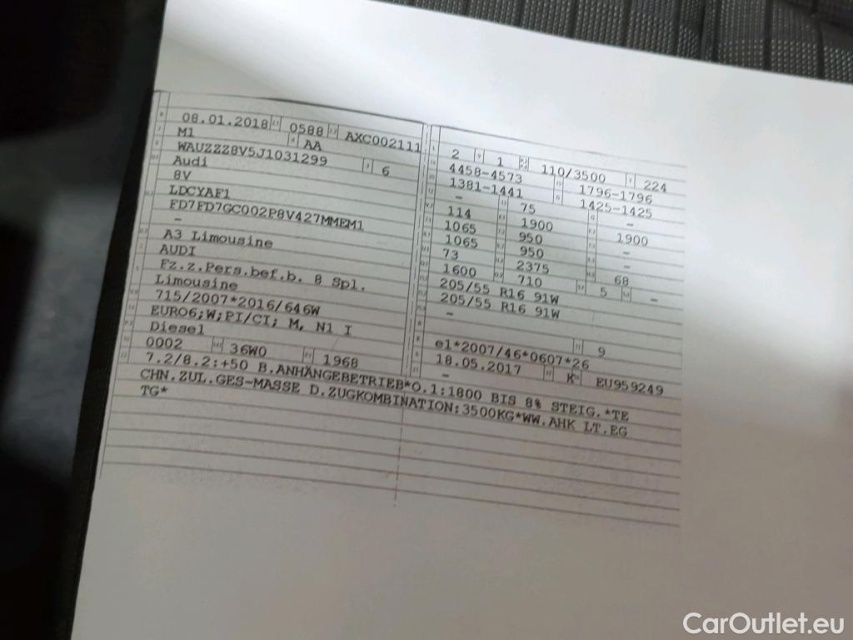 08.01.2018 0588 AXC002111
M1 AA
WAUZZZ8V5J1031299 6
Audi
8V
LDCYAF1
FD7FD7GC002P8V427MMEM1
-
A3 Limousine
AUDI
Fz.z.Pers.bef.b. 8 Spl.
Limousine
715/2007*2016/646W
EURO6;W;PI/CI; M, N1 I
Diesel
0002 36W0 1968
2 1 110/3500 224
4458-4573 1796-1796
1381-1441 1425-1425
- 75 -
114 1900 1900
1065 950 -
1065 950 -
73 2375 68
1600 710 5 -
205/55 R16 91W
205/55 R16 91W
-
- 9
e1*2007/46*0607*26
18.05.2017 K EU959249
-
7.2/8.2:+50 B.ANHÄNGEBETRIEB*O.1:1800 BIS 8% STEIG.*TE
CHN.ZUL.GES-MASSE D.ZUGKOMBINATION:3500KG*WW.AHK LT.EG
TG*
CarOutlet.eu